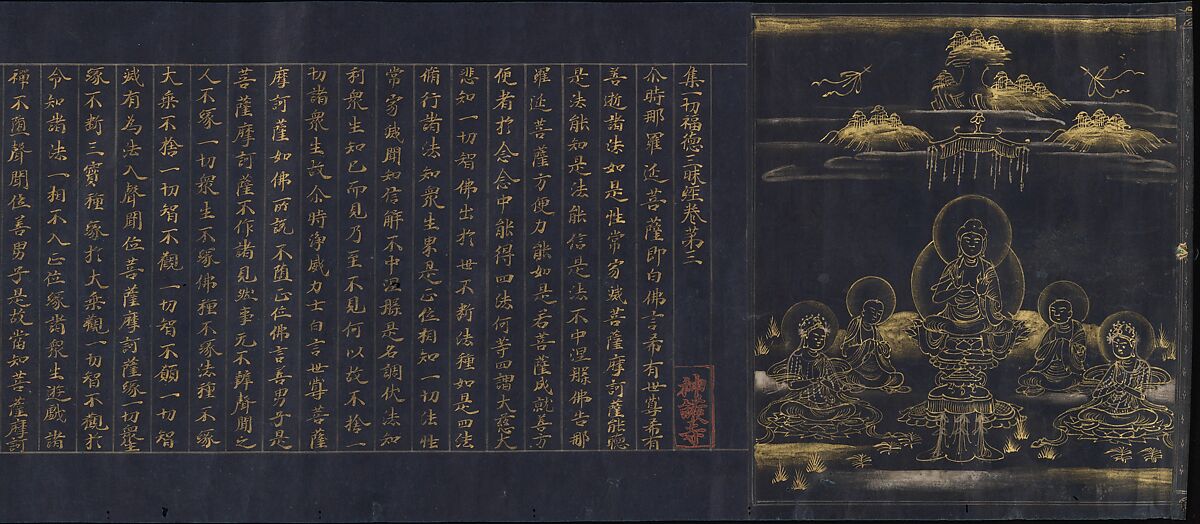 集一切福德三昧經卷第三
神護寺
尒時那羅延菩薩即白佛言希有世尊希有
善逝諸法如是性常寂滅菩薩摩訶薩能聽
是法能知是法能信是法不中涅槃佛告那
羅延菩薩方便力故能如是若菩薩成就善方
便者於念念中能得四法何等四謂大慈大
悲知一切智佛出於世不斷法種如是四法
脩行諸法知衆生界是正位相知一切法性
常寂滅聞知信解不中涅槃是名調伏法知
利衆生知已而見乃至不見何以故不捨一
切諸衆生故尒時淨威力士白言世尊菩薩
摩訶薩如佛所說不墮正位佛言善男子是
菩薩摩訶薩不作諸見然事元不辭聲聞之
人不緣一切衆生不緣佛種不緣法種不緣
大乘不捨一切智不觀一切智不願一切智
滅有為法入聲聞位菩薩摩訶薩緣一切衆生
緣不斷三寶種緣於大乘觀一切智不觀於
令知諸法一相不入正位緣諸衆生遊戲諸
禪不墮聲聞位善男子是故當知菩薩摩訶